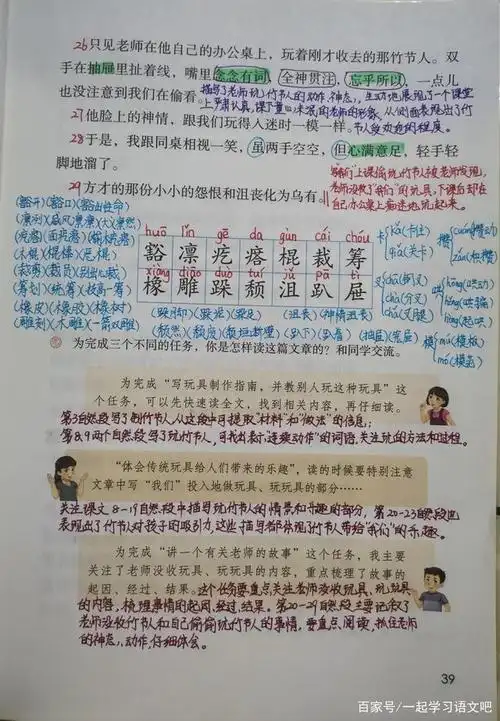 26只见老师在他自己的办公桌上，玩着刚才收去的那竹节人。双
手在抽屉里扯着线，嘴里念念有词，全神贯注，忘乎所以，一点儿
也没注意到我们在偷看。
描写了老师玩竹节人的动作、神态，生动地展现了一个课堂
上严肃认真，课下童心未泯的老师的形象，从侧面表现出了竹
节人受欢迎的程度。
27他脸上的神情，跟我们玩得入迷时一模一样。
28于是，我跟同桌相视一笑，虽两手空空，但心满意足，轻手轻
脚地溜了。
29方才的那份小小的怨恨和沮丧化为乌有。
"我们"上课偷玩竹节人被老师发现，
老师没收了"我们"的玩具，下课后却在
自己办公桌上痴迷地玩起来。
(豁开)(豁口)(豁出性命)
(凛冽)(威风凛凛)(大义凛然)
(疙瘩)(面疙瘩)
(木棍)(棍棒)
(裁剪)(裁员)(别出心裁)
(筹划)(统筹)(技高一筹)
(橡皮)(橡胶)(橡树)
(雕刻)(木雕)(一箭双雕)
huō lǐn gē da gùn cái chóu
豁 凛 疙 瘩 棍 裁 筹
xiàng diāo duò tuí jǔ pā tì
橡 雕 跺 颓 沮 趴 屉
(跺脚)(跺泥)(跺足)
(沮丧)(神情沮丧)
(颓然)(颓废)(颓垣断壁)
(趴下)(趴着)
(抽屉)(笼屉)
卡 kǎ(卡住)
qiǎ(关卡)
攒 cuán(攒动)
zǎn(攒钱)
叉 chā(分叉)
chǎ(叉腿)
哄 hōng(哄动)
hǒng(哄骗)
hòng(起哄)
模 mú(模板)
mó(模范)
为完成三个不同的任务，你是怎样读这篇文章的？和同学交流。
为完成“写玩具制作指南，并教别人玩这种玩具”这
个任务，可以先快速读全文，找到相关内容，再仔细读。
第3自然段写了制作竹节人，从这段中可提取"材料"和"做法"的信息；
第8、9两个自然段写了玩竹节人，可找出表示"连续动作"的词语，关注玩的方法和过程。
“体会传统玩具给人们带来的乐趣”，读的时候要特别注意
文章中写“我们”投入地做玩具、玩玩具的部分……
关注课文8-19自然段中描写玩竹节人的情景和乐趣的部分，第20-23自然段也
表现出了竹节人对孩子的吸引力，这些描写都体现了竹节人带给"我们"的乐趣。
为完成“讲一个有关老师的故事”这个任务，我主要
关注了老师没收玩具、玩玩具的内容，重点梳理了故事的
起因、经过、结果。
这个任务要重点关注老师没收玩具、玩玩具
的内容，梳理事情的起因、经过、结果。第20-29自然段主要记叙了
老师没收竹节人和自己偷偷玩竹节人的事情，要重点阅读，抓住老师
的神态、动作，仔细体会。
39
百家号/一起学习语文吧